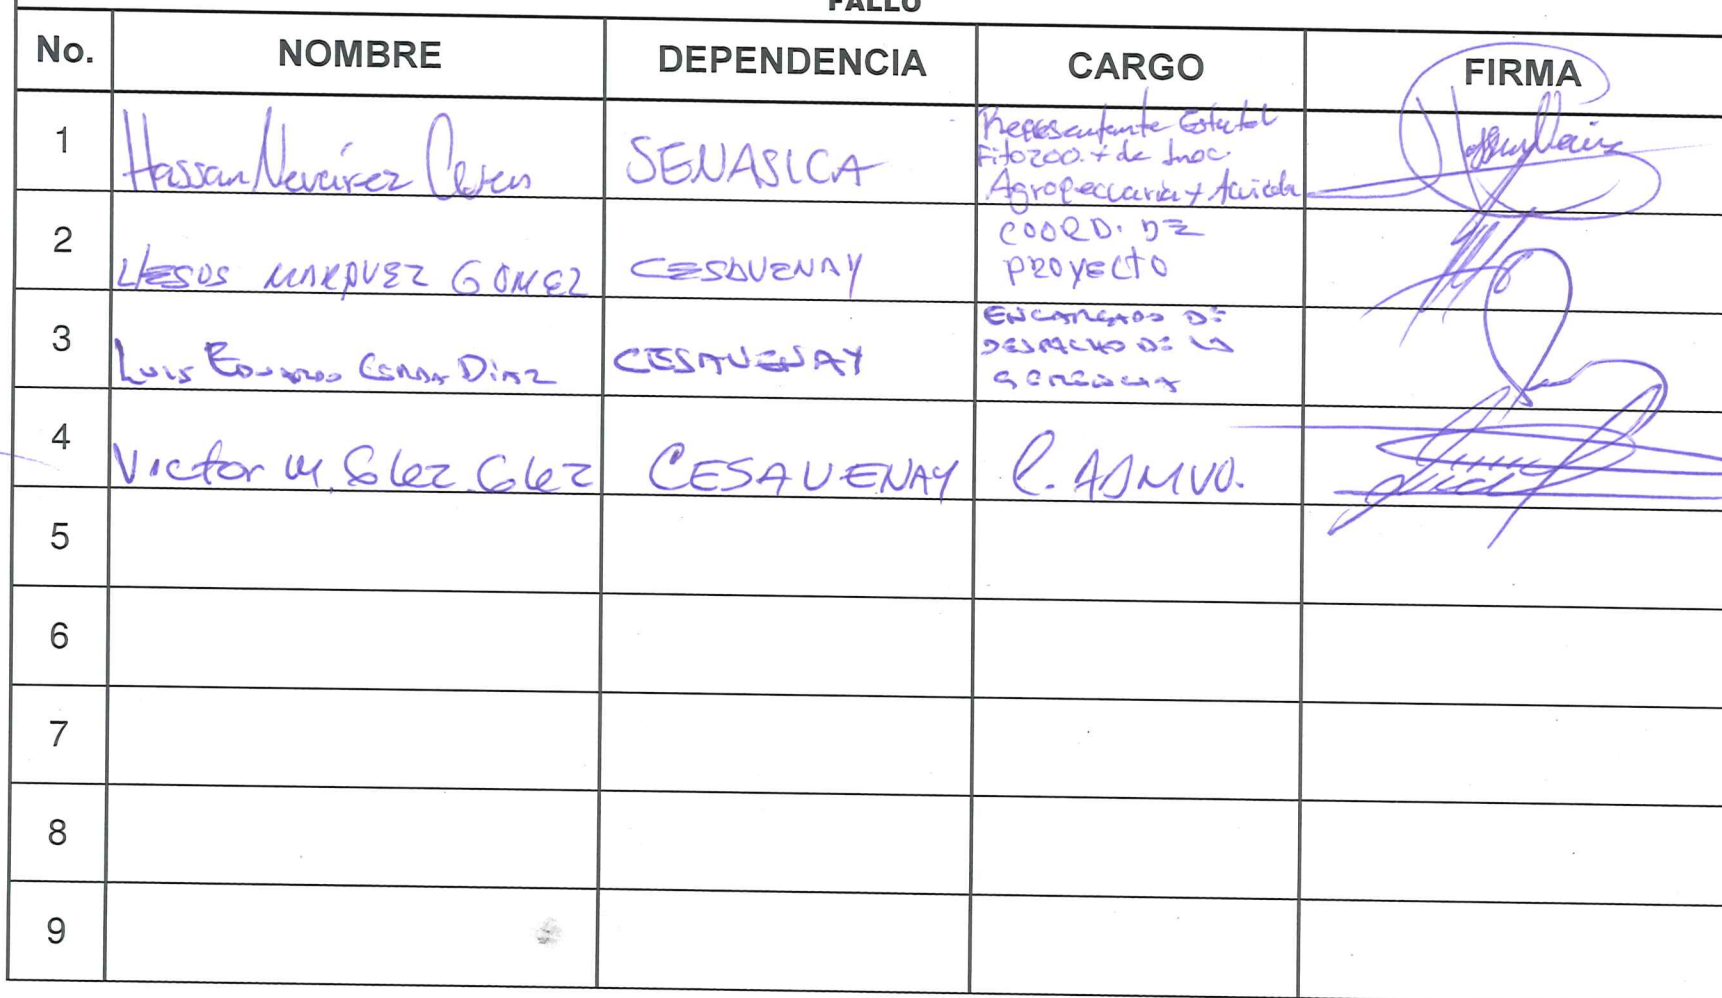 FALLO
No. NOMBRE DEPENDENCIA CARGO FIRMA
1 Hassan Nevárez SENASICA Representante Estatal
Fitozoo. y de Inoc.
Agropecuaria y Acuícola
2 Jesus MARQUEZ GOMEZ CESAVENAY COORD. DE
PROYECTO
3 Luis Eduardo Diaz CESAVENAY ENCARGADO DE
DESPACHO DE LA
GERENCIA
4 Victor M. Glez Glez CESAVENAY C. ADMVO.
5
6
7
8
9